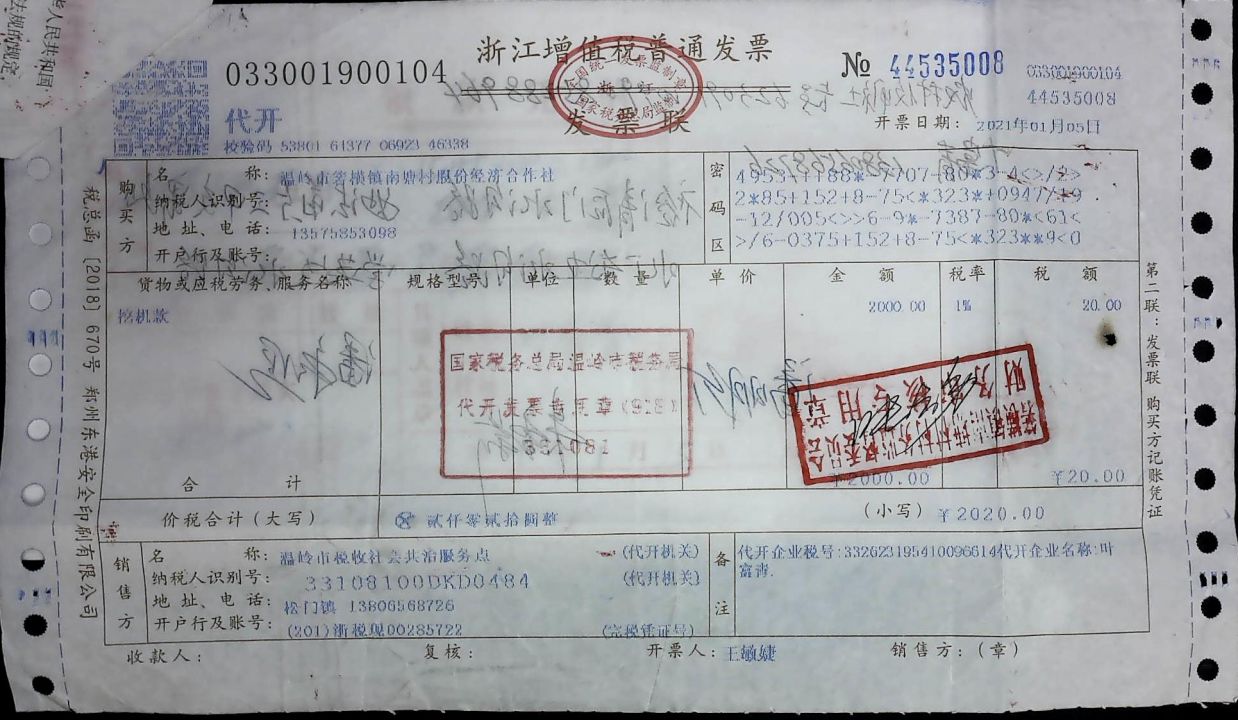 华人民共和国
浙江增值税普通发票
033001900104
№ 44535008
033001900104
44535008
全国统一发票监制章
浙江
国家税务总局监制
发票联
代开
开票日期: 2021年01月05日
校验码 53801 61377 06923 46338
购买方
名 称: 温岭市箬横镇南塘村股份经济合作社
纳税人识别号:
地 址、电 话: 13575853098
开户行及账号:
密码区
2*85+152+8-75<*323*+0947/+9
-12/005<>>6-9*-7387-80*<61<
>/6-0375+152+8-75<*323**9<0
货物或应税劳务、服务名称 规格型号 单位 数 量 单 价 金 额 税率 税 额
挖机款 2000.00 1% 20.00
国家税务总局温岭市税务局
代开发票专用章(918)
331081
合 计 ¥2000.00 ¥20.00
价税合计(大写) ⊗ 贰仟零贰拾圆整 (小写) ¥2020.00
销售方
名 称: 温岭市税收社会共治服务点 (代开机关)
纳税人识别号: 33108100DKD0484 (代开机关)
地 址、电 话: 松门镇 13806568726
开户行及账号: (201)浙税现00285722 (完税凭证号)
备注
代开企业税号:332623195410096614代开企业名称:叶
富青.
收款人: 复核: 开票人: 王敏婕 销售方:(章)
税总函〔2018〕670号 郑州东港安全印刷有限公司
第二联:发票联 购买方记账凭证